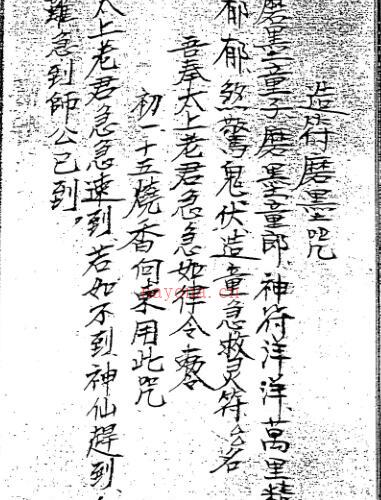 造符磨墨咒
磨墨童子磨墨童郎神符洋洋萬里精
郁郁煞驚鬼伏造童急救灵符公名
吾奉太上老君急急如律令
初一十五燒香向東用此咒
太上老君急急速到若如不到神仙趕到
難急到師公已到